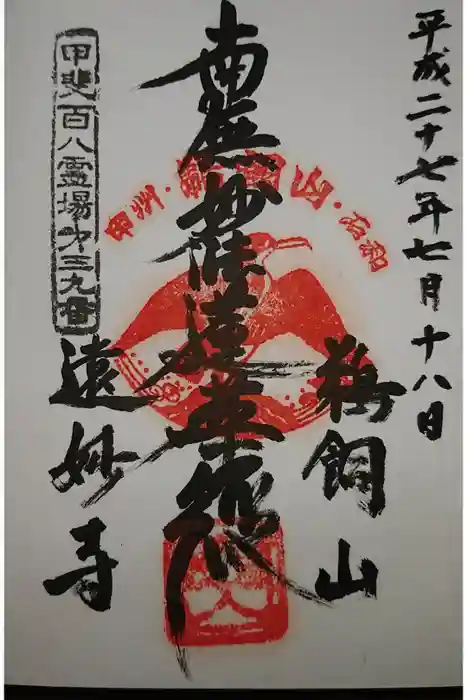 平成二十七年七月十八日
鵜飼山
南無妙法蓮華経
甲州・鵜飼山・石和
遠妙寺
甲斐百八霊場第三九番